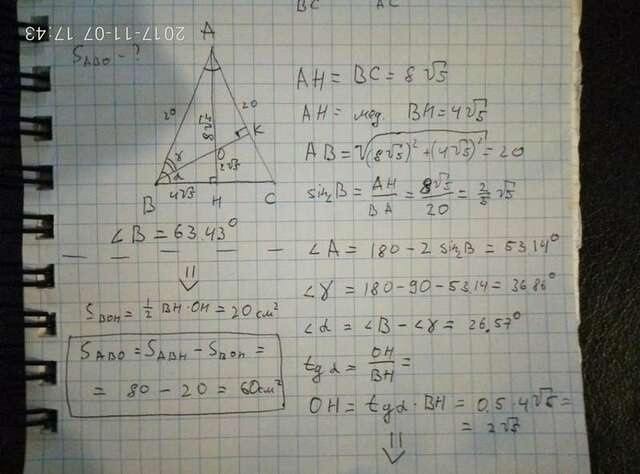 BC AC
2017-11-07 17:43
S_ABO - ?
A
20
20
8√5
K
O
2√5
γ
α
B
4√5
H
C
∠B = 63.43°
S_BOH = 1/2 BH · OH = 20 см²
S_ABO = S_ABH - S_BOH =
= 80 - 20 = 60 см²
AH = BC = 8√5
AH = мед. BH = 4√5
AB = √((8√5)² + (4√5)²) = 20
sin∠B = AH/BA = 8√5/20 = 2/5 √5
∠A = 180 - 2 sin∠B = 53.14°
∠γ = 180 - 90 - 53.14 = 36.86°
∠α = ∠B - ∠γ = 26.57°
tg α = OH/BH =
OH = tg α · BH = 0.5 · 4√5 =
= 2√5